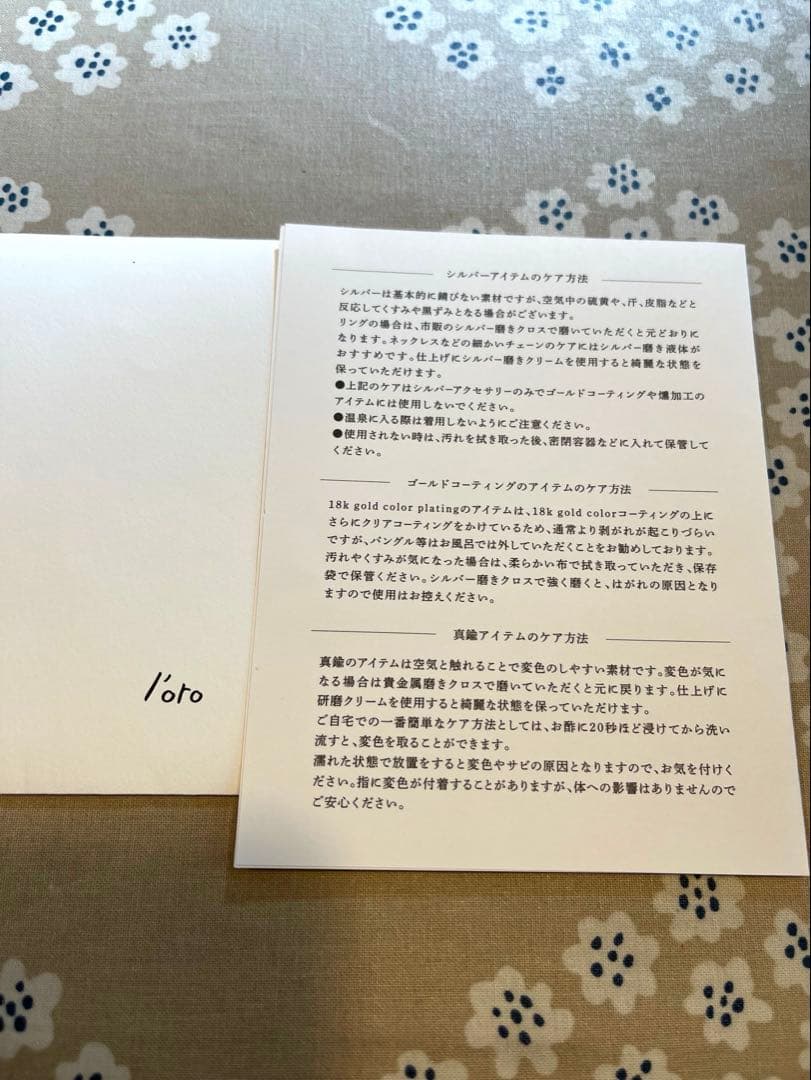 l'oro
シルバーアイテムのケア方法
シルバーは基本的に錆びない素材ですが、空気中の硫黄や、汗、皮脂などと
反応してくすみや黒ずみとなる場合がございます。
リングの場合は、市販のシルバー磨きクロスで磨いていただくと元どおりに
なります。ネックレスなどの細かいチェーンのケアにはシルバー磨き液体が
おすすめです。仕上げにシルバー磨きクリームを使用すると綺麗な状態を
保っていただけます。
●上記のケアはシルバーアクセサリーのみでゴールドコーティングや燻加工の
アイテムには使用しないでください。
●温泉に入る際は着用しないようにご注意ください。
●使用されない時は、汚れを拭き取った後、密閉容器などに入れて保管して
ください。
ゴールドコーティングのアイテムのケア方法
18k gold color platingのアイテムは、18k gold colorコーティングの上に
さらにクリアコーティングをかけているため、通常より剥がれが起こりづらい
ですが、バングル等はお風呂では外していただくことをお勧めしております。
汚れやくすみが気になった場合は、柔らかい布で拭き取っていただき、保存
袋で保管ください。シルバー磨きクロスで強く磨くと、はがれの原因となり
ますので使用はお控えください。
真鍮アイテムのケア方法
真鍮のアイテムは空気と触れることで変色のしやすい素材です。変色が気に
なる場合は貴金属磨きクロスで磨いていただくと元に戻ります。仕上げに
研磨クリームを使用すると綺麗な状態を保っていただけます。
ご自宅での一番簡単なケア方法としては、お酢に20秒ほど浸けてから洗い
流すと、変色を取ることができます。
濡れた状態で放置をすると変色やサビの原因となりますので、お気を付けく
ださい。指に変色が付着することがありますが、体への影響はありませんので
ご安心ください。